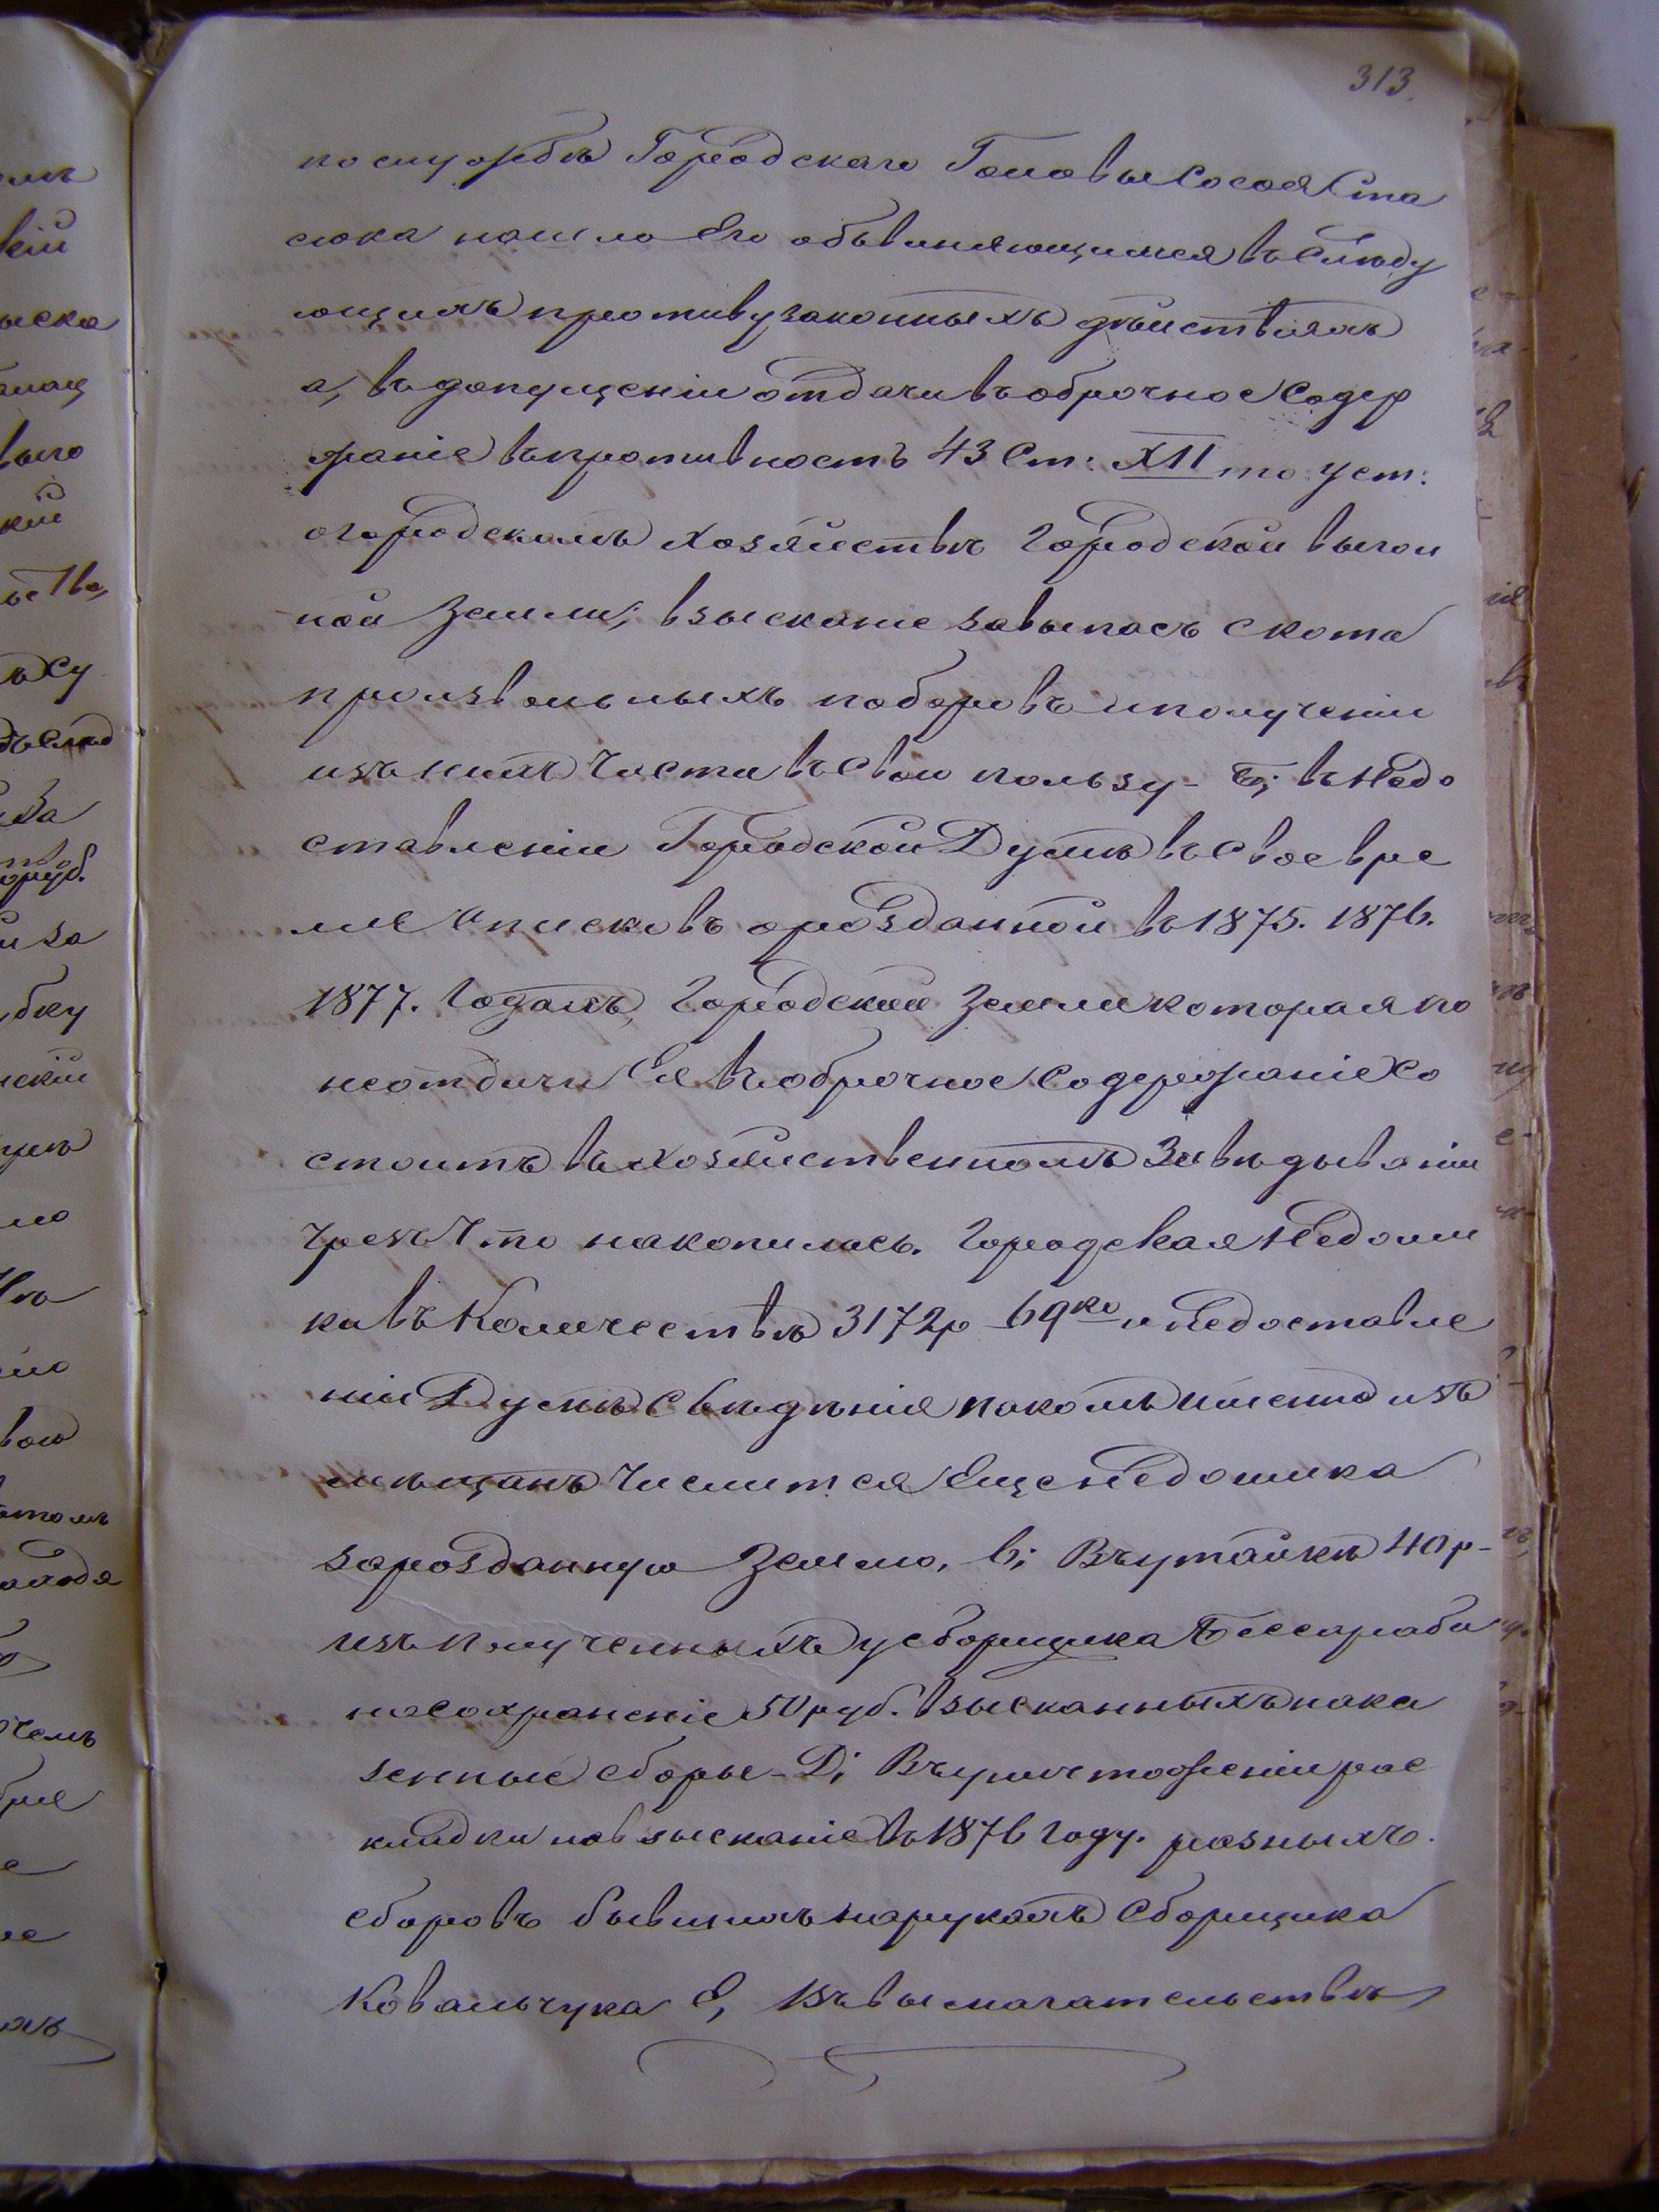 313.
по службѣ Городскаго Головы Сосоя Ста
сюка нашло Его обвиняющимся въ Слѣду
ющихъ противузаконныхъ дѣйствіяхъ
а, въ допущеніи отдачи въ оброчное Содер
жаніе въ противность 43 Ст: XII то Уст:
о городскомъ хозяйствѣ Городской выгон
ной Земли; взысканіе за выпасъ скота
произвольныхъ поборовъ и полученіи
изъ нихъ Части въ Свою пользу - б; въ Недо
ставленіи Городской Думѣ въ Свое вре
мя Списковъ о розданной въ 1875. 1876.
1877. Годахъ, Городской Земли которая по
неотдачи Ея въ оброчное Содержаніе Со
стоитъ въ Хозяйственномъ Завѣдываніи
чрезъ Что накопилась. Городская Недоим
ка въ Количествѣ 3172р 69ко и Недоставле
ніи Думѣ Свѣдѣнія на комъ именно изъ
мѣщанъ Числится Еще Недоимка
за розданную Землю, в; Въ утайкѣ 40 р-
изъ Полученныхъ у сборщика Бессараба
на сохраненіе 50 руб. Взысканныхъ на ка
зенные сборы - Д; Въ уничтоженіи рас
кладки на взысканіе въ 1876 Году. разныхъ.
сборовъ бывшихъ на рукахъ Сборщика
Ковальчука Е, Въ вымогательствѣ